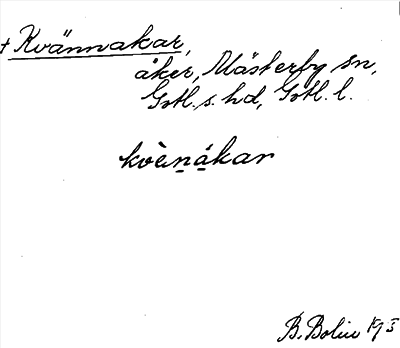 + Kvännakar,
åker, Mästerby sn,
Gotl. s. hd, Gotl. l.
kvènákar
B. Bolin